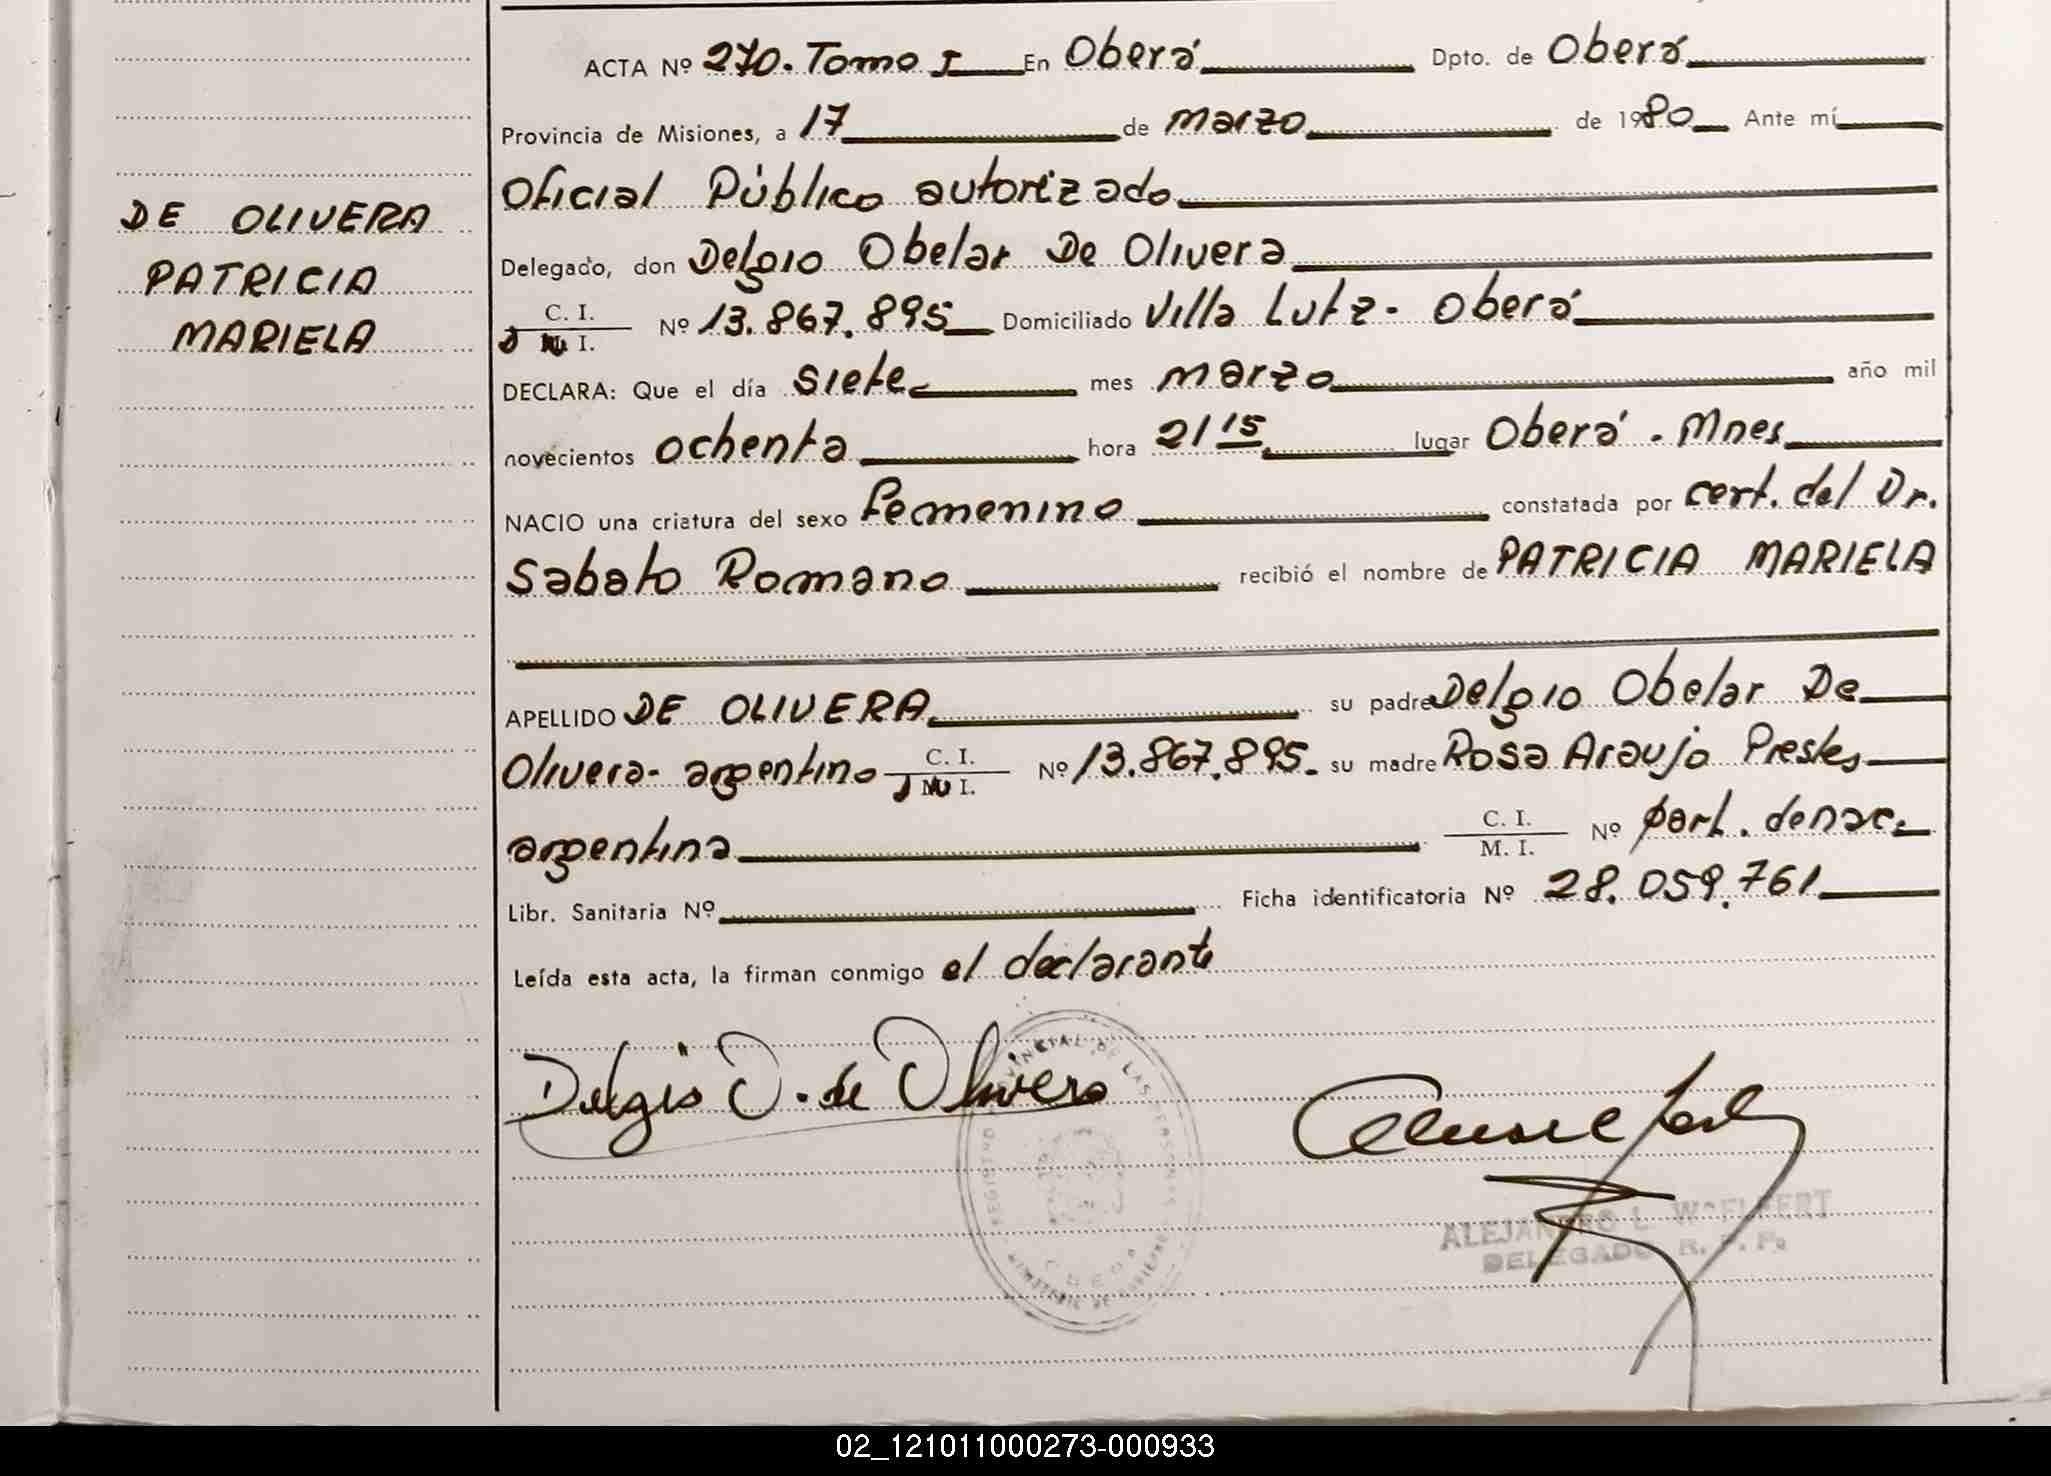 ACTA Nº 270. Tomo I En Oberá Dpto. de Oberá
Provincia de Misiones, a 17 de marzo de 1980 Ante mí
Oficial Público autorizado
DE OLIVERA
Delegado, don Delgio Obelar De Olivera
PATRICIA
C. I.
D N I. Nº 13.867.895 Domiciliado Villa Lutz - Oberá
MARIELA
DECLARA: Que el día siete mes marzo año mil
novecientos ochenta hora 21 15 lugar Oberá - Mnes
NACIO una criatura del sexo femenino constatada por cert. del Dr.
Sabato Romano recibió el nombre de PATRICIA MARIELA
APELLIDO DE OLIVERA su padre Delgio Obelar De
Olivera - argentino C. I.
D N I. Nº 13.867.895 su madre Rosa Araujo Prestes
argentina C. I.
M. I. Nº part. denac.
Libr. Sanitaria Nº Ficha identificatoria Nº 28.059.761
Leída esta acta, la firman conmigo el declarante
Delgio O. de Olivera
REGISTRO PROVINCIAL DE LAS PERSONAS
MINISTERIO DE GOBIERNO
ALEJANDRO L. WOELFERT
DELEGADO R. P. P.
02_121011000273-000933